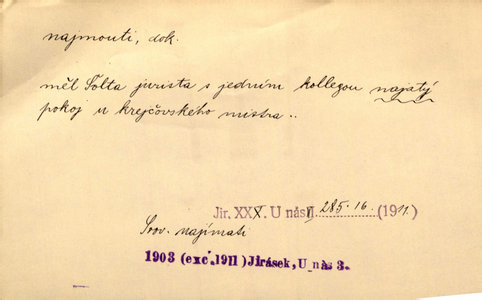 najmouti, dok.
měl Šolta jurista s jedním kollegou najatý
pokoj u krejčovského mistra..
Jir. XXX. U nás II, 285.16 (1911.)
Srov. najímati
1903 (exc. 1911) Jirásek, U nás 3.